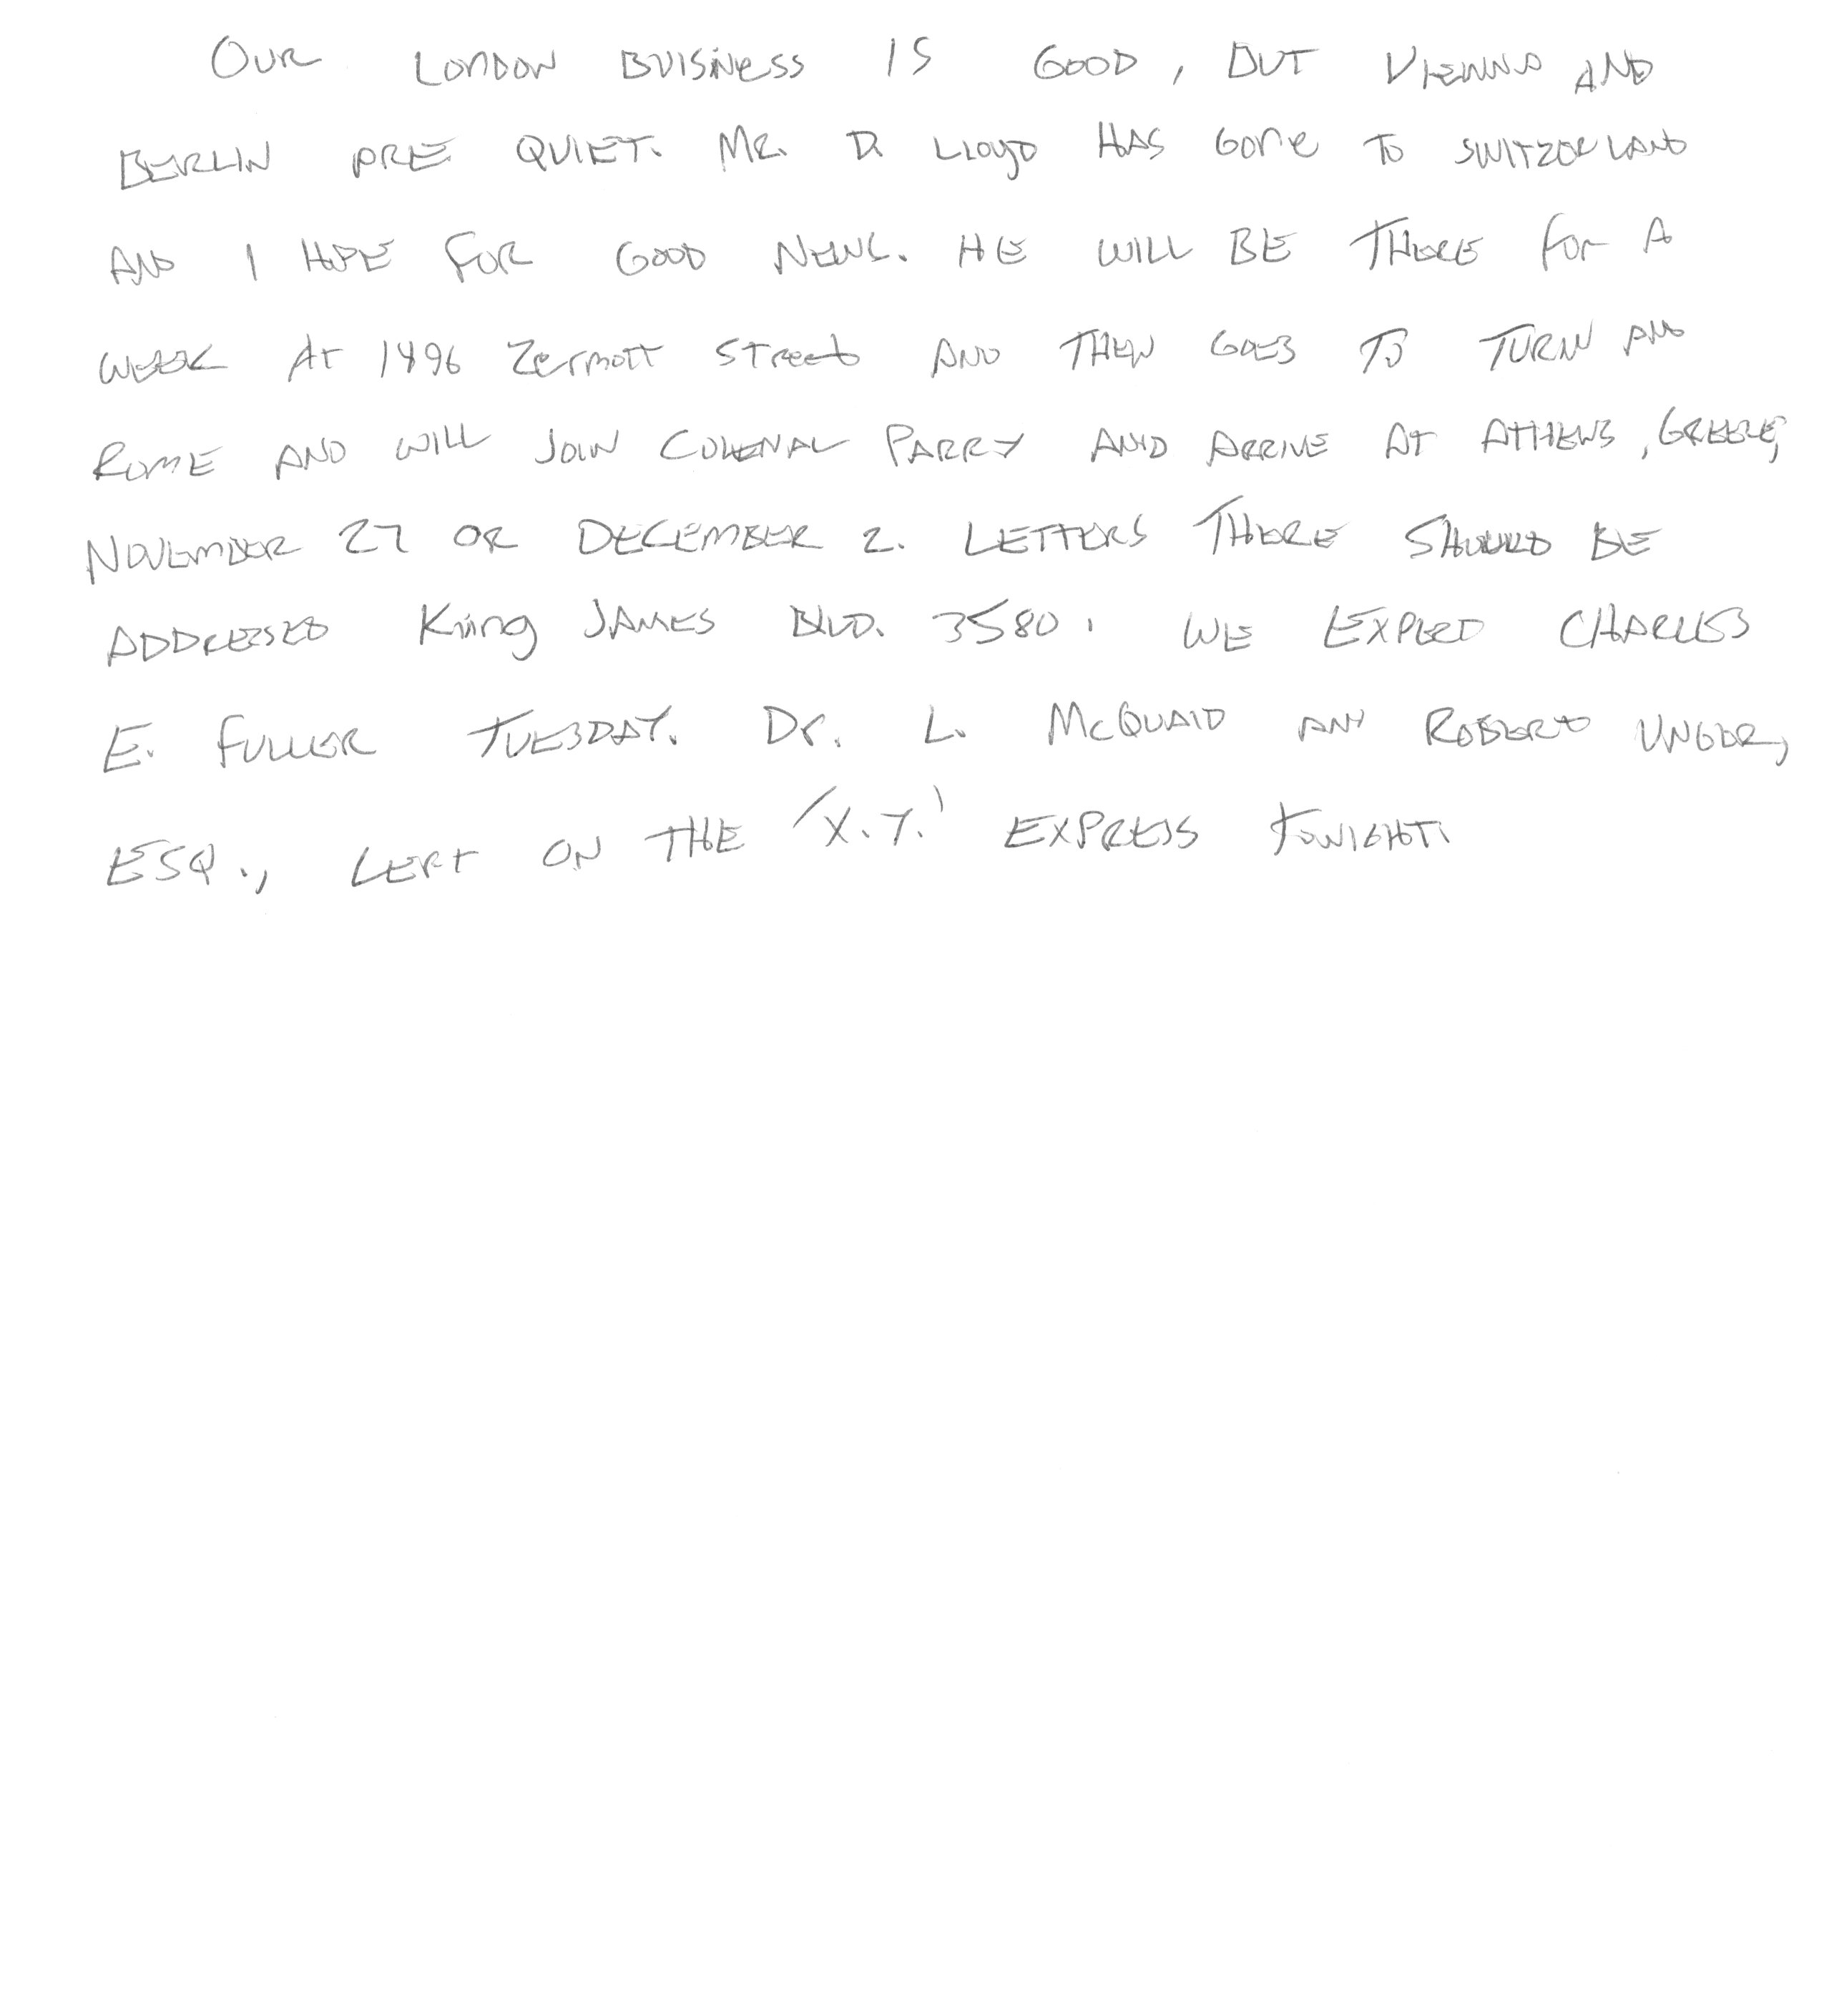 OUR LONDON BUISINESS IS GOOD, BUT VIENNA AND
BERLIN ARE QUIET. MR. D. LLOYD HAS GONE TO SWITZERLAND
AND I HOPE FOR GOOD NEWS. HE WILL BE THERE FOR A
WEEK AT 1496 ZERMOTT STREET AND THEN GOES TO TURIN AND
ROME AND WILL JOIN COLENAL PARRY AND ARRIVE AT ATHENS, GREECE,
NOVEMBER 27 OR DECEMBER 2. LETTERS THERE SHOULD BE
ADDRESSED King JAMES BLVD. 3580. WE EXPECT CHARLES
E. FULLER TUESDAY. Dr. L. McQUAID AND ROBERT UNGER,
ESQ., LEFT ON THE 'X.Y.' EXPRESS TONIGHT.